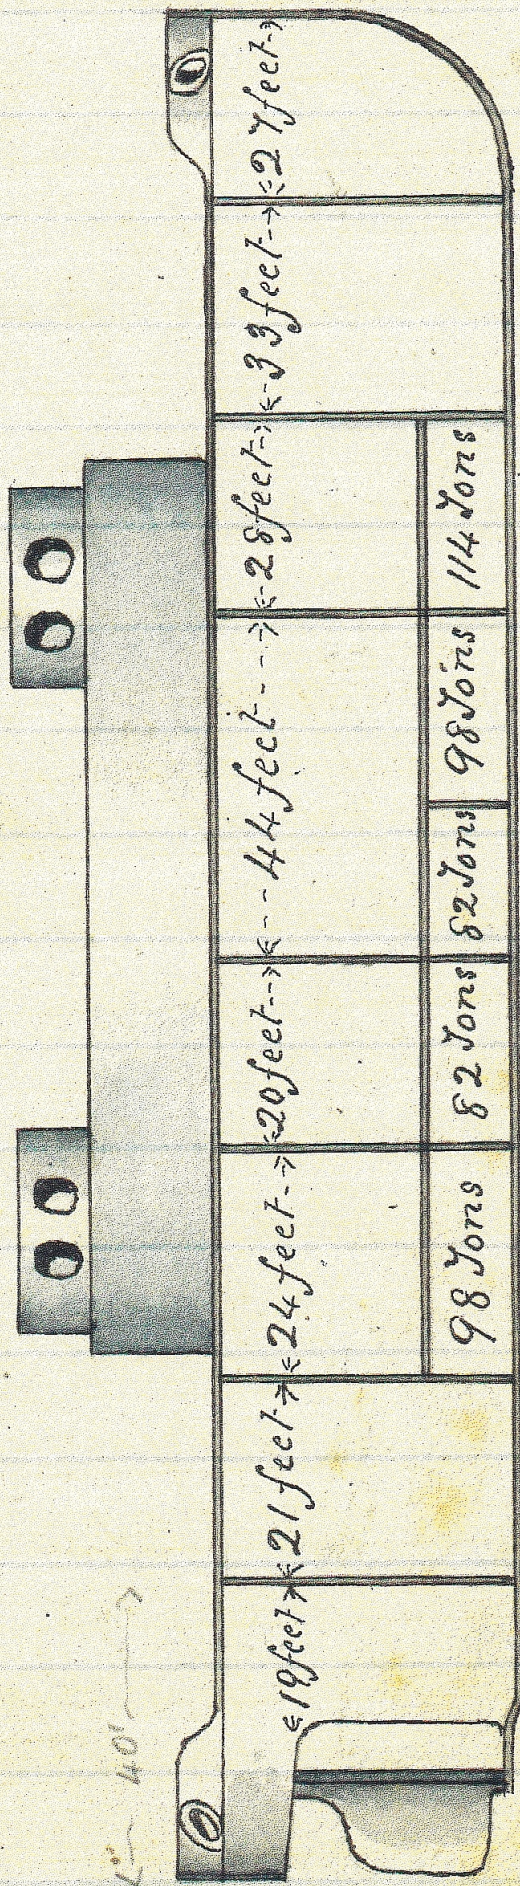 19 feet 21 feet 24 feet 20 feet 44 feet 28 feet 33 feet 27 feet
98 Tons 82 Tons 82 Tons 98 Tons 114 Tons
40'